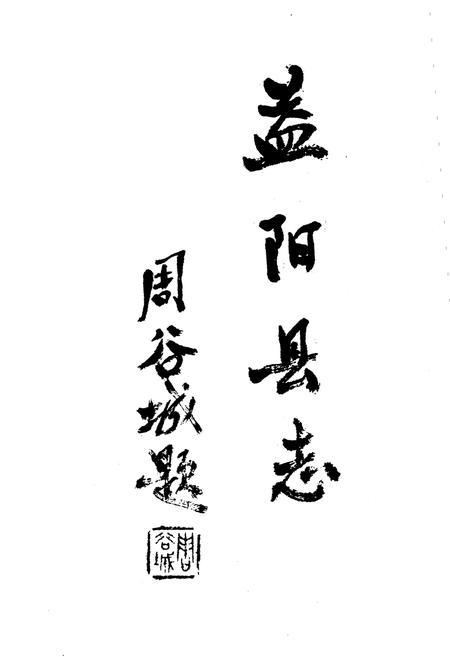 益阳县志
周谷城题
周谷城